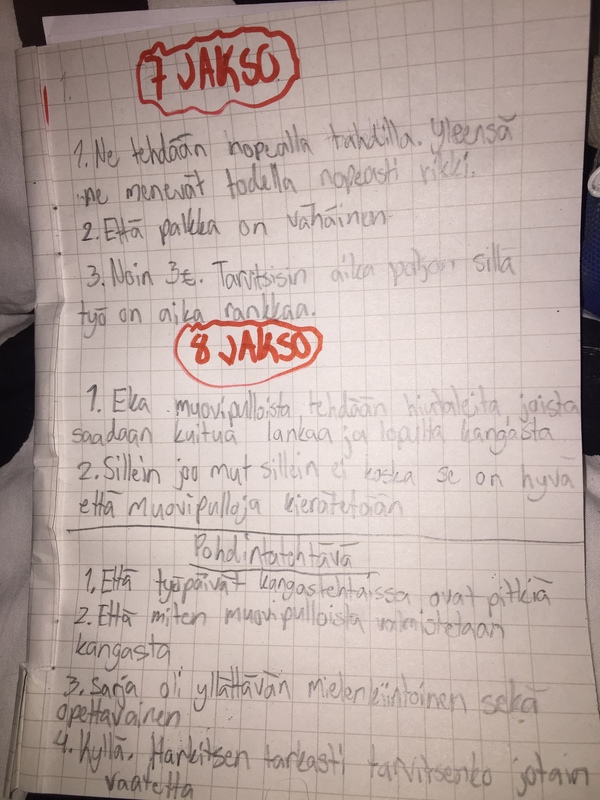 7 JAKSO
1. Ne tehdään nopealla tahdilla. Yleensä
ne menevät todella nopeasti rikki.
2. Että palkka on vähäinen
3. Noin 3€. Tarvitsisin aika paljon sillä
työ on aika rankkaa.
8 JAKSO
1. Eka muovipulloista tehdään hiutaleita, joista
saadaan kuitua lankaa ja lopulta kangasta
2. Sillein joo mut sillein ei koska se on hyvä
että muovipulloja kierätetään
Pohdintatehtävä
1. Että työpäivät kangastehtaissa ovat pitkiä
2. Että miten muovipulloista valmistetaan
kangasta
3. Sarja oli yllättävän mielenkiintoinen sekä
opettavainen
4. Kyllä. Harkitsen tarkasti tarvitsenko jotain
vaatetta